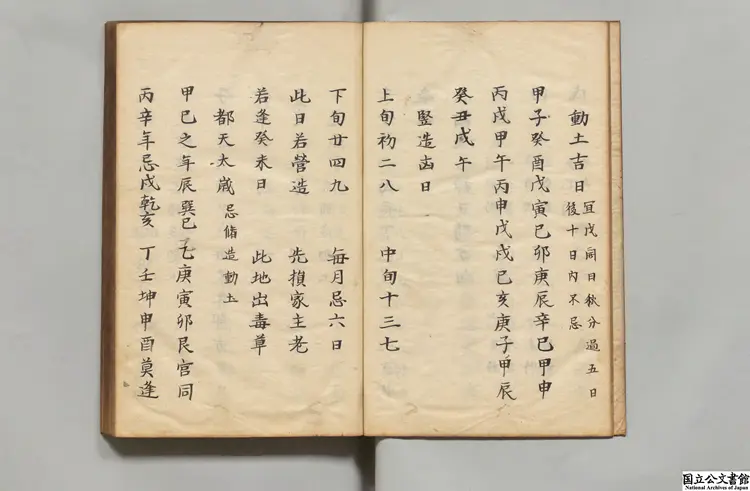 動土吉日
宜戊同日秋分過五日
後十日內不忌
甲子癸酉戊寅己卯庚辰辛巳甲申
丙戌甲午丙申戊戌己亥庚子甲辰
癸丑戌午
竪造凶日
上旬初二八 中旬十三七
下旬廿四九 每月忌六日
此日若營造 先損家主老
若逢癸未日 此地出毒草
都天太歲 忌脩造動土
甲己之年辰巽巳 乙庚寅卯艮宮同
丙辛年忌戌乾亥 丁壬坤申酉莫逢
国立公文書館
National Archives of Japan